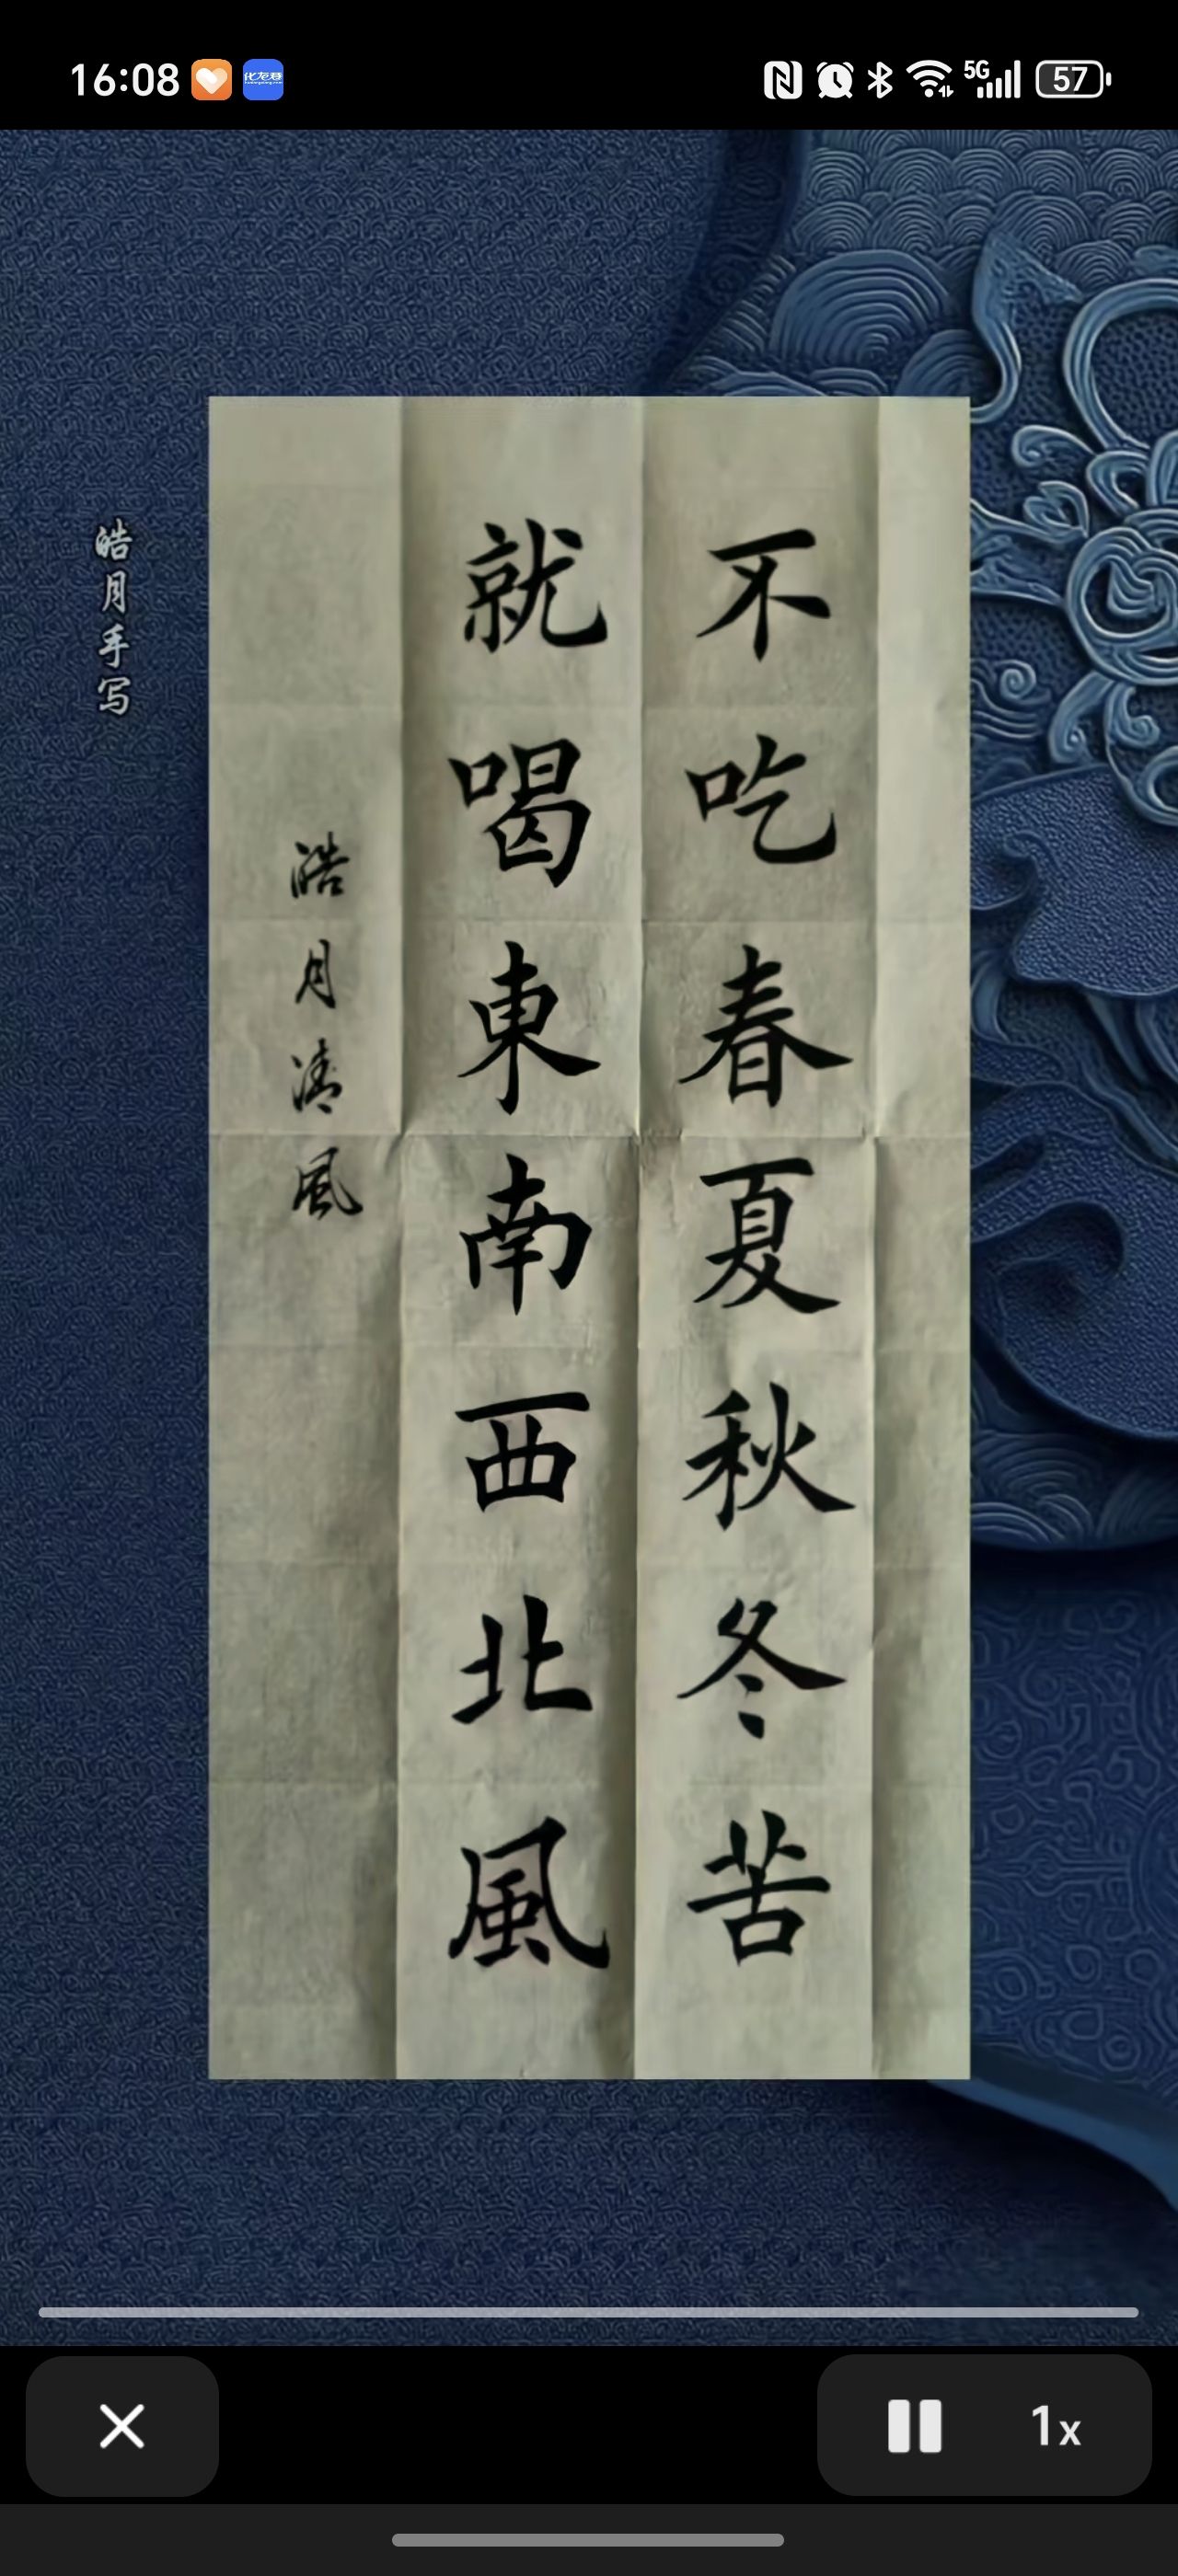 16:08
化龙巷
5G
57
不吃春夏秋冬苦
就喝東南西北風
皓月清風
皓月手写
1x